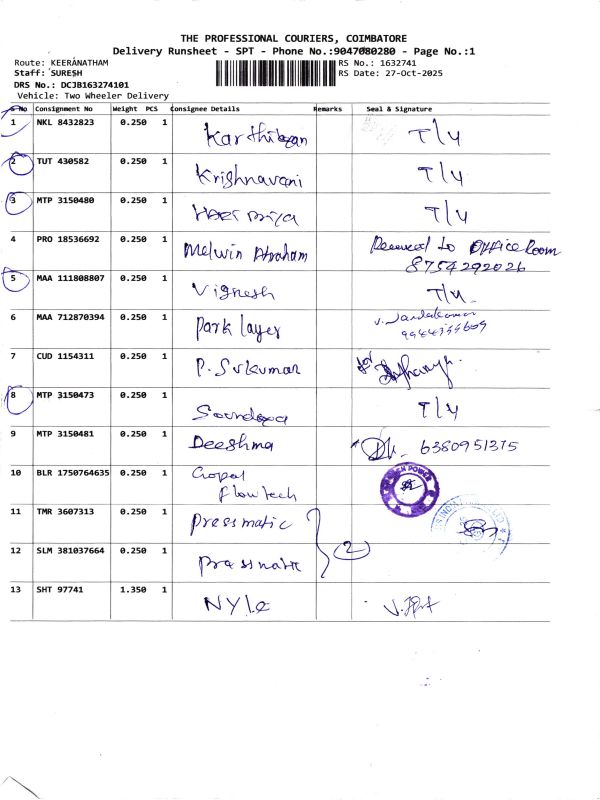 THE PROFESSIONAL COURIERS, COIMBATORE
Delivery Runsheet - SPT - Phone No.:9047080280 - Page No.:1
Route: KEERANATHAM RS No.: 1632741
Staff: SURESH RS Date: 27-Oct-2025
DRS No.: DCJB163274101
Vehicle: Two Wheeler Delivery
S No Consignment No Weight PCS Consignee Details Remarks Seal & Signature
1 NKL 8432823 0.250 1 Karthikeyan T/y
2 TUT 430582 0.250 1 Krishnavani T/y
3 MTP 3150480 0.250 1 T/y
4 PRO 18536692 0.250 1 Melwin Abraham Received to Office Room
8754292026
5 MAA 111808807 0.250 1 Vignesh T/y
6 MAA 712870394 0.250 1 Park layer
7 CUD 1154311 0.250 1 P. Sukumar for
8 MTP 3150473 0.250 1 T/y
9 MTP 3150481 0.250 1 Deeshma 6380951375
10 BLR 1750764635 0.250 1 Gopal
Flowtech
11 TMR 3607313 0.250 1 Pressmatic
2
12 SLM 381037664 0.250 1 Pressmatic
13 SHT 97741 1.350 1 NYLE